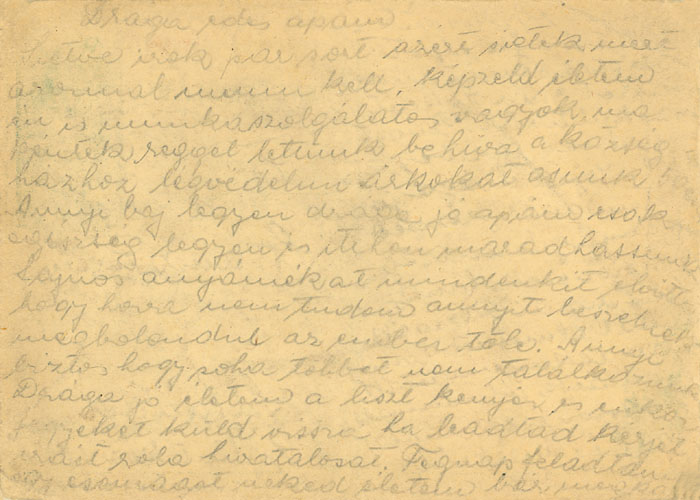 Drága édes apám
Sietve irok pár sort azért sietek mert
azonnal menni kell. Képzeld életem
én is munkaszolgálatos vagyok, ma
péntek reggel lettünk be hiva a község
házhoz légvédelmi árkokat ásunk
Annyi baj legyen drága jó apám csak
egészség legyen és itthon maradhassunk
Sajnos anyámékat mindenkit elvitték
hogy hova nem tudom annyit beszélnek
megbolondul az ember tőle. Annyi
biztos hogy soha többet nem találkozunk
Drága jó életem a liszt kenyér és cukor
jegyeket küld vissza ha leadtad kérjél
róla hivatalosat. Tegnap feladtam
egy csomagot neked életem